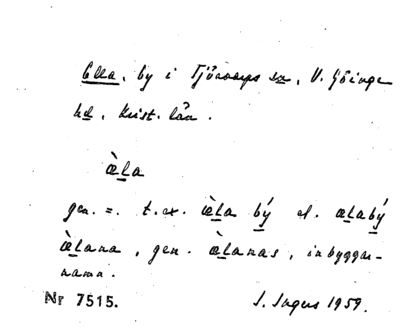 Ella, by i Tjörnarps sn, V. Göinge
hd, Krist. län.
æ̀la
gen. =. t.ex. æ̀la bý el. ælabý
æ̀lana, gen. æ̀lanas, inbyggar-
namn.
Nr 7515. I. Ingers 1959.